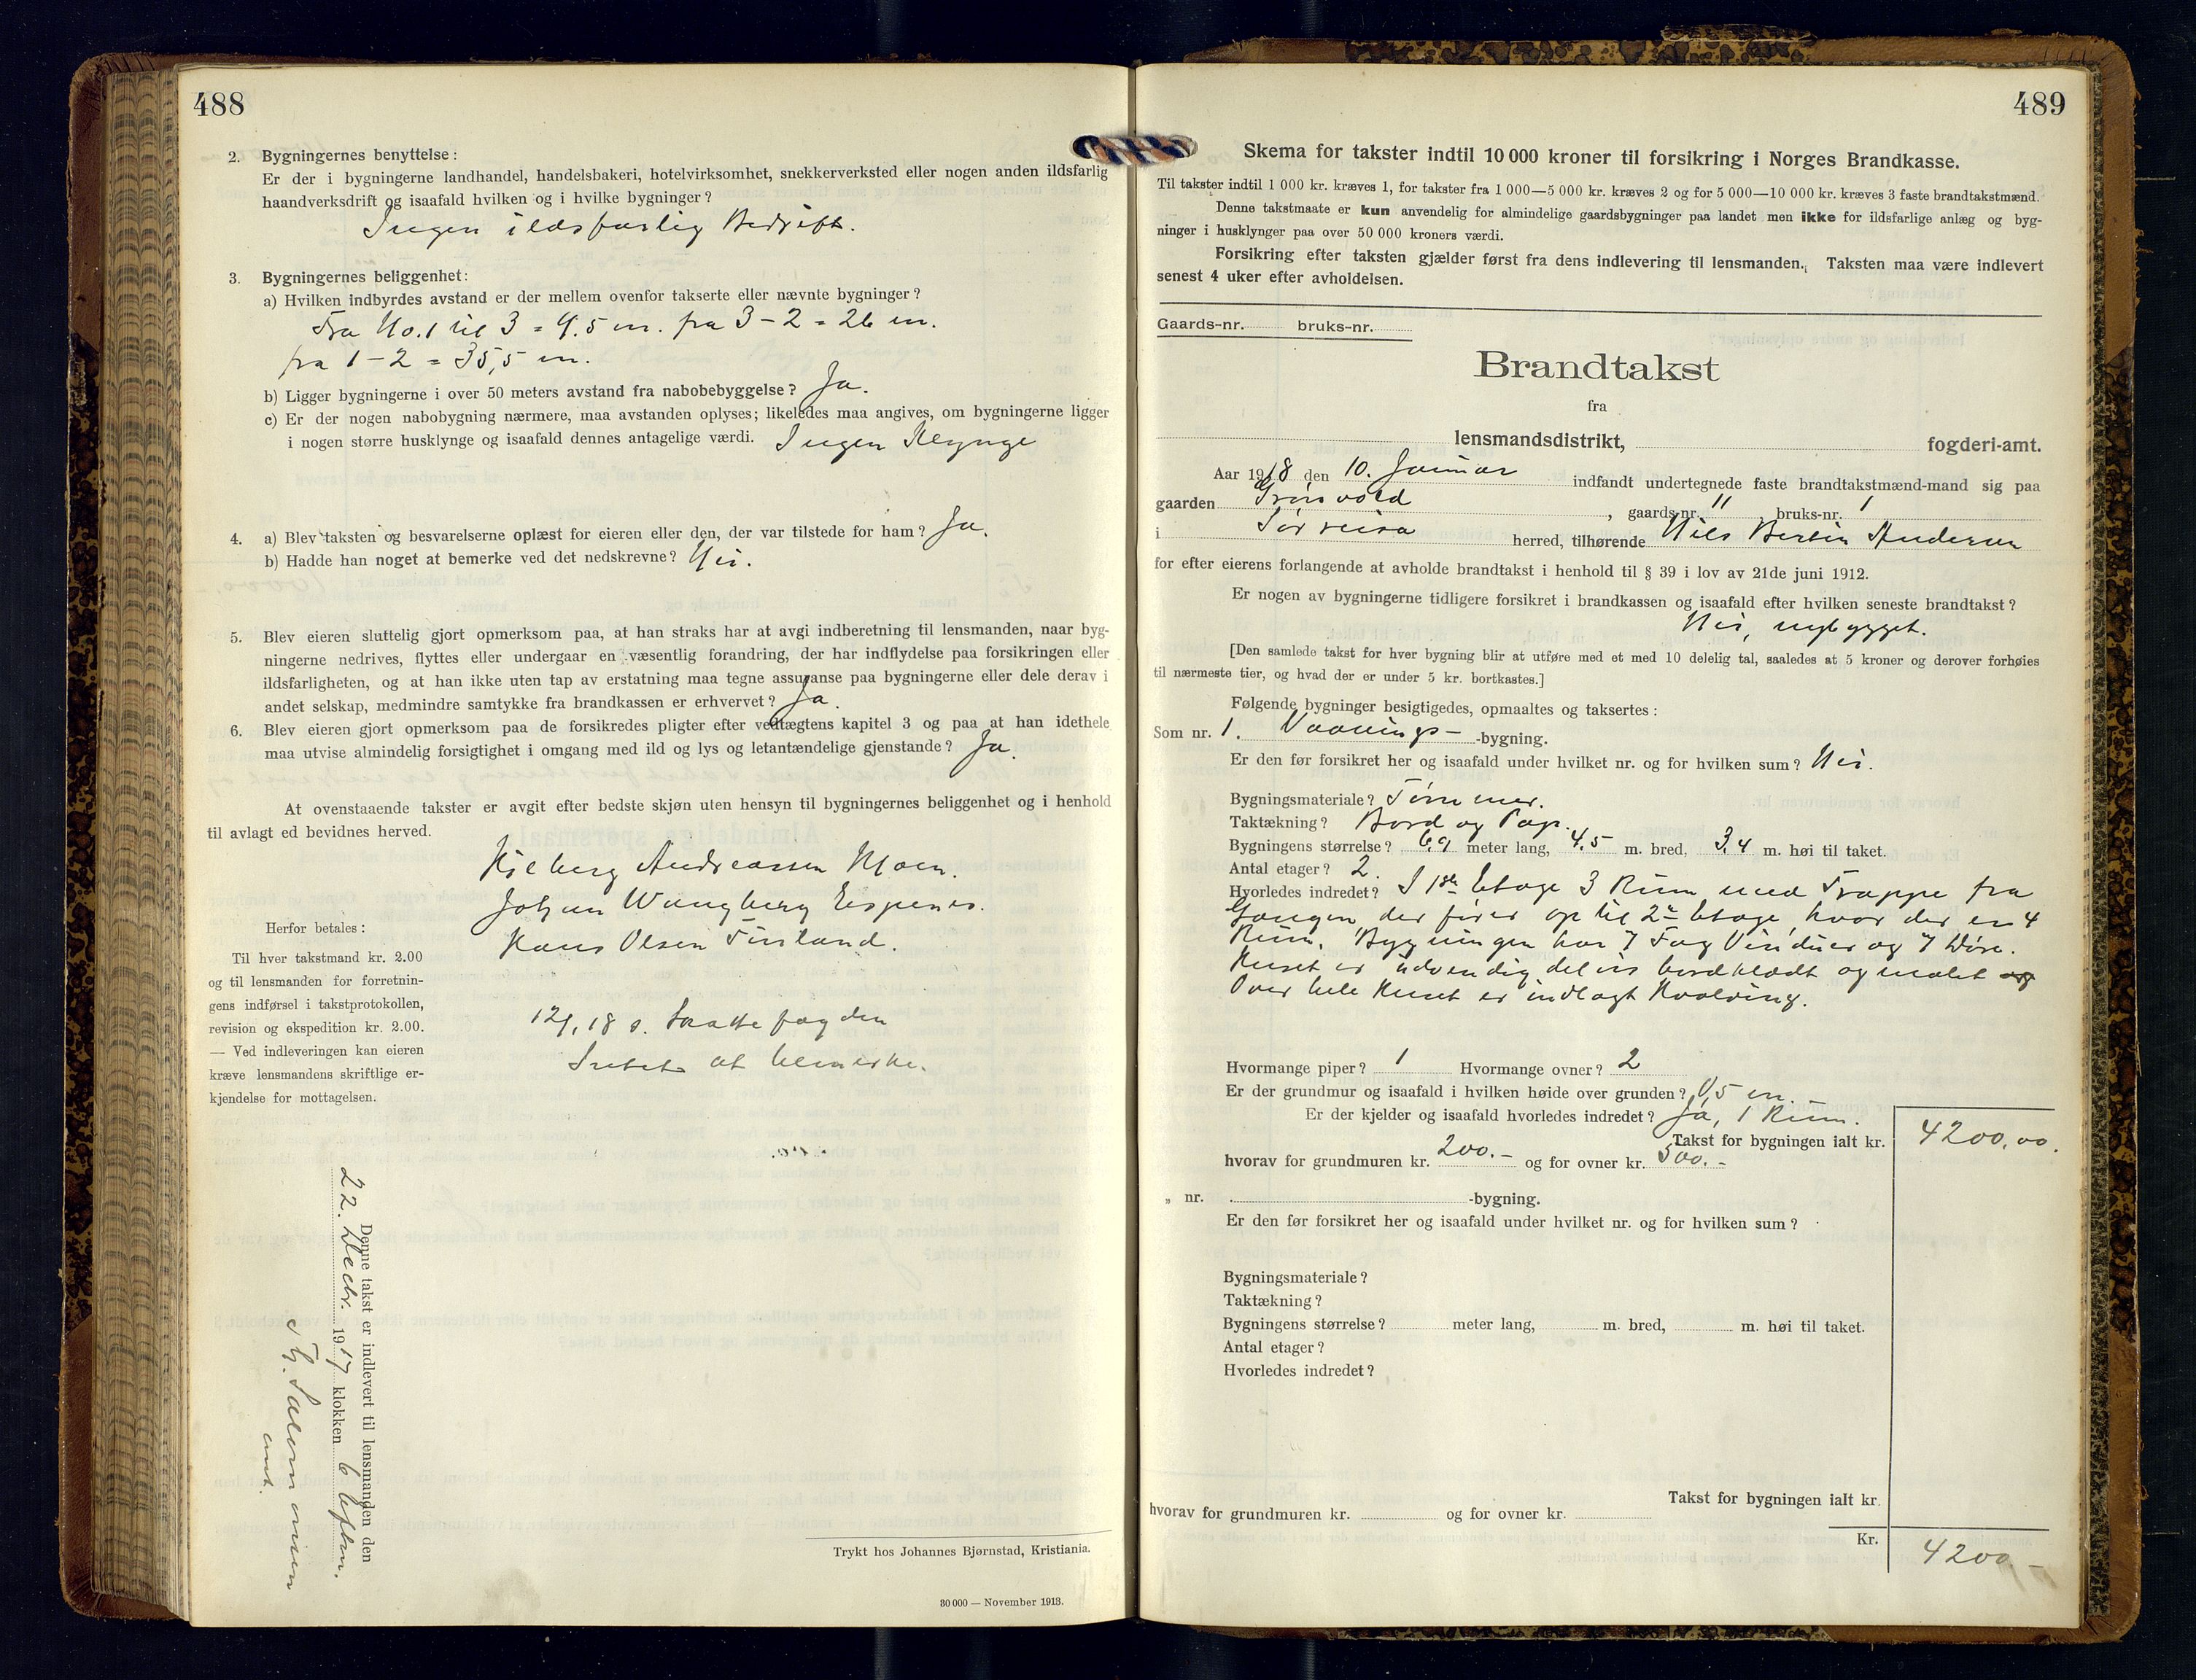 488
2. Bygningernes benyttelse:
Er der i bygningerne landhandel, handelsbakeri, hotelvirksomhet, snekkerverksted eller nogen anden ildsfarlig
haandverksdrift og isaafald hvilken og i hvilke bygninger?
Ingen ildsfarlig Bedrift.
3. Bygningernes beliggenhet:
a) Hvilken indbyrdes avstand er der mellem ovenfor takserte eller nævnte bygninger?
Fra No. 1 til 3 = 9.5 m. fra 3 - 2 = 26 m.
fra 1 - 2 = 35,5 m.
b) Ligger bygningerne i over 50 meters avstand fra nabobebyggelse? Ja.
c) Er der nogen nabobygning nærmere, maa avstanden oplyses; likeledes maa angives, om bygningerne ligger
i nogen større husklynge og isaafald dennes antagelige værdi. Ingen Klynge
4. a) Blev taksten og besvarelserne oplæst for eieren eller den, der var tilstede for ham? Ja.
b) Hadde han noget at bemerke ved det nedskrevne? Nei.
5. Blev eieren sluttelig gjort opmerksom paa, at han straks har at avgi indberetning til lensmanden, naar byg-
ningerne nedrives, flyttes eller undergaar en væsentlig forandring, der har indflydelse paa forsikringen eller
ildsfarligheten, og at han ikke uten tap av erstatning maa tegne assuranse paa bygningerne eller dele derav i
andet selskap, medmindre samtykke fra brandkassen er erhvervet? Ja.
6. Blev eieren gjort opmerksom paa de forsikredes pligter efter vedtægtens kapitel 3 og paa at han idethele
maa utvise almindelig forsigtighet i omgang med ild og lys og letantændelige gjenstande? Ja.
At ovenstaaende takster er avgit efter bedste skjøn uten hensyn til bygningernes beliggenhet og i henhold
til avlagt ed bevidnes herved.
Hilberg Andreassen Moen.
Johan Wangberg Espenes.
Hans Olsen Finland.
Herfor betales:
Til hver takstmand kr. 2.00
og til lensmanden for forretnin-
gens indførsel i takstprotokollen,
revision og ekspedition kr. 2.00.
— Ved indleveringen kan eieren
kræve lensmandens skriftlige er-
kjendelse for mottagelsen.
12/1 18 s. Skattefogden
Intet at bemerke.
Denne takst er indlevert til lensmanden den
22. Decbr. 1917 klokken 6 Eftm.
Salomonsen
Trykt hos Johannes Bjørnstad, Kristiania.
30 000 — November 1913.
489
Skema for takster indtil 10 000 kroner til forsikring i Norges Brandkasse.
Til takster indtil 1 000 kr. kræves 1, for takster fra 1 000—5 000 kr. kræves 2 og for 5 000—10 000 kr. kræves 3 faste brandtakstmænd.
Denne takstmaate er kun anvendelig for almindelige gaardsbygninger paa landet men ikke for ildsfarlige anlæg og byg-
ninger i husklynger paa over 50 000 kroners værdi.
Forsikring efter taksten gjælder først fra dens indlevering til lensmanden. Taksten maa være indlevert
senest 4 uker efter avholdelsen.
Gaards-nr. bruks-nr.
Brandtakst
fra
lensmandsdistrikt, fogderi-amt.
Aar 1918 den 10. Januar indfandt undertegnede faste brandtakstmænd-mand sig paa
gaarden Grönvold, gaards-nr. 11, bruks-nr. 1
i Sörreisa herred, tilhørende Nils Bertin Andersen
for efter eierens forlangende at avholde brandtakst i henhold til § 39 i lov av 21de juni 1912.
Er nogen av bygningerne tidligere forsikret i brandkassen og isaafald efter hvilken seneste brandtakst?
Nei, nybygget.
[Den samlede takst for hver bygning blir at utføre med et med 10 delelig tal, saaledes at 5 kroner og derover forhøies
til nærmeste tier, og hvad der er under 5 kr. bortkastes.]
Følgende bygninger besigtigedes, opmaaltes og taksertes:
Som nr. 1. Vaanings- -bygning.
Er den før forsikret her og isaafald under hvilket nr. og for hvilken sum? Nei.
Bygningsmateriale? Tömmer.
Taktækning? Bord og Pap.
Bygningens størrelse? 6,9 meter lang, 4,5 m. bred, 3,4 m. høi til taket.
Antal etager? 2.
Hvorledes indredet? I 1ste Etage 3 Rum med Trappe fra
Gangen, der förer op til 2den Etage, hvor der er 4
Rum. Bygningen har 7 Fag Vinduer og 7 Döre.
Huset er udvendig delvis bordklædt og malet og
Over hele Huset er indlagt Hvælving.
Hvormange piper? 1 Hvormange ovner? 2
Er der grundmur og isaafald i hvilken høide over grunden? 0,5 m.
Er der kjelder og isaafald hvorledes indredet? Ja, 1 Rum.
Takst for bygningen ialt kr. 4200,00.
hvorav for grundmuren kr. 200.- og for ovner kr. 300.-
„ nr. -bygning.
Er den før forsikret her og isaafald under hvilket nr. og for hvilken sum?
Bygningsmateriale?
Taktækning?
Bygningens størrelse? meter lang, m. bred, m. høi til taket.
Antal etager?
Hvorledes indredet?
Takst for bygningen ialt kr.
hvorav for grundmuren kr. og for ovner kr.
Kr. 4200 -